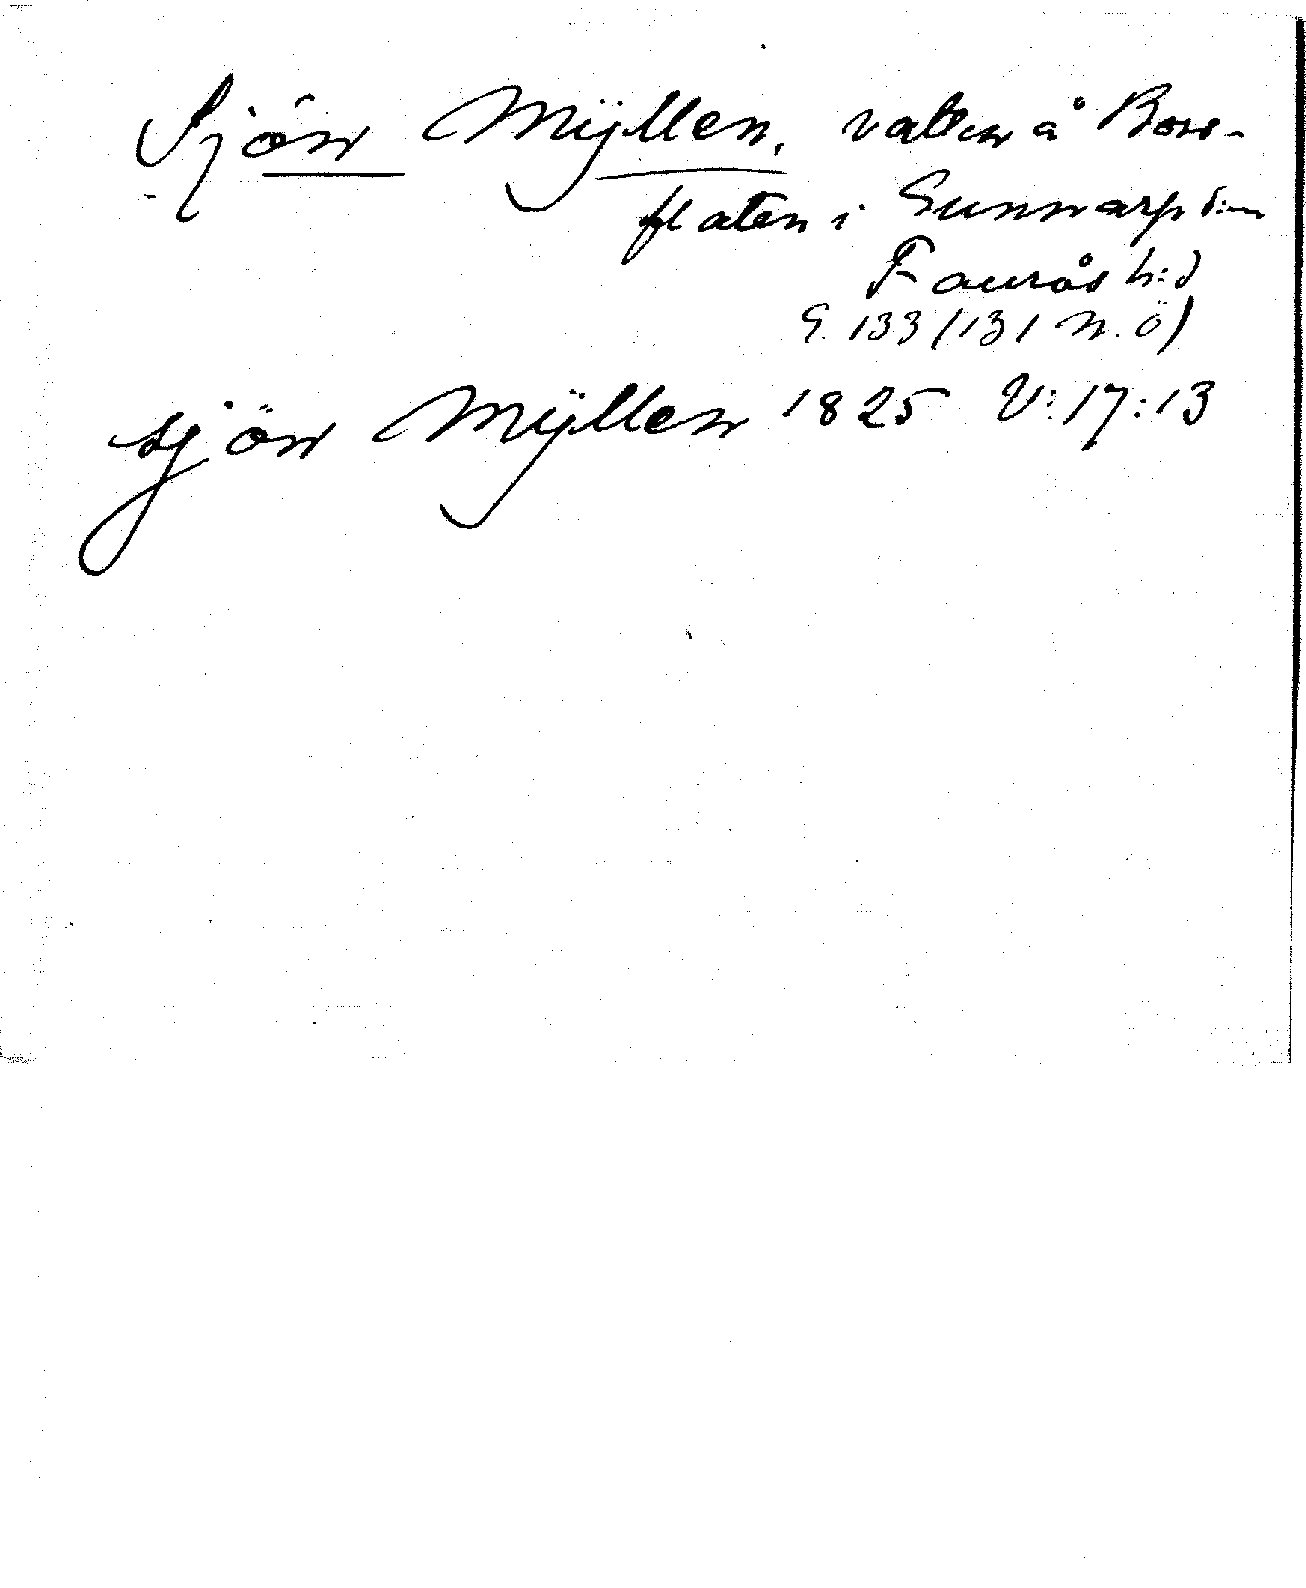 Sjön Mÿllen, vatten å Bow-
flaten i Gunnarp s:n
Faurås h:d
G. 133 (131 N. Ö)
sjön Mÿllen 1825 V: 17: 13